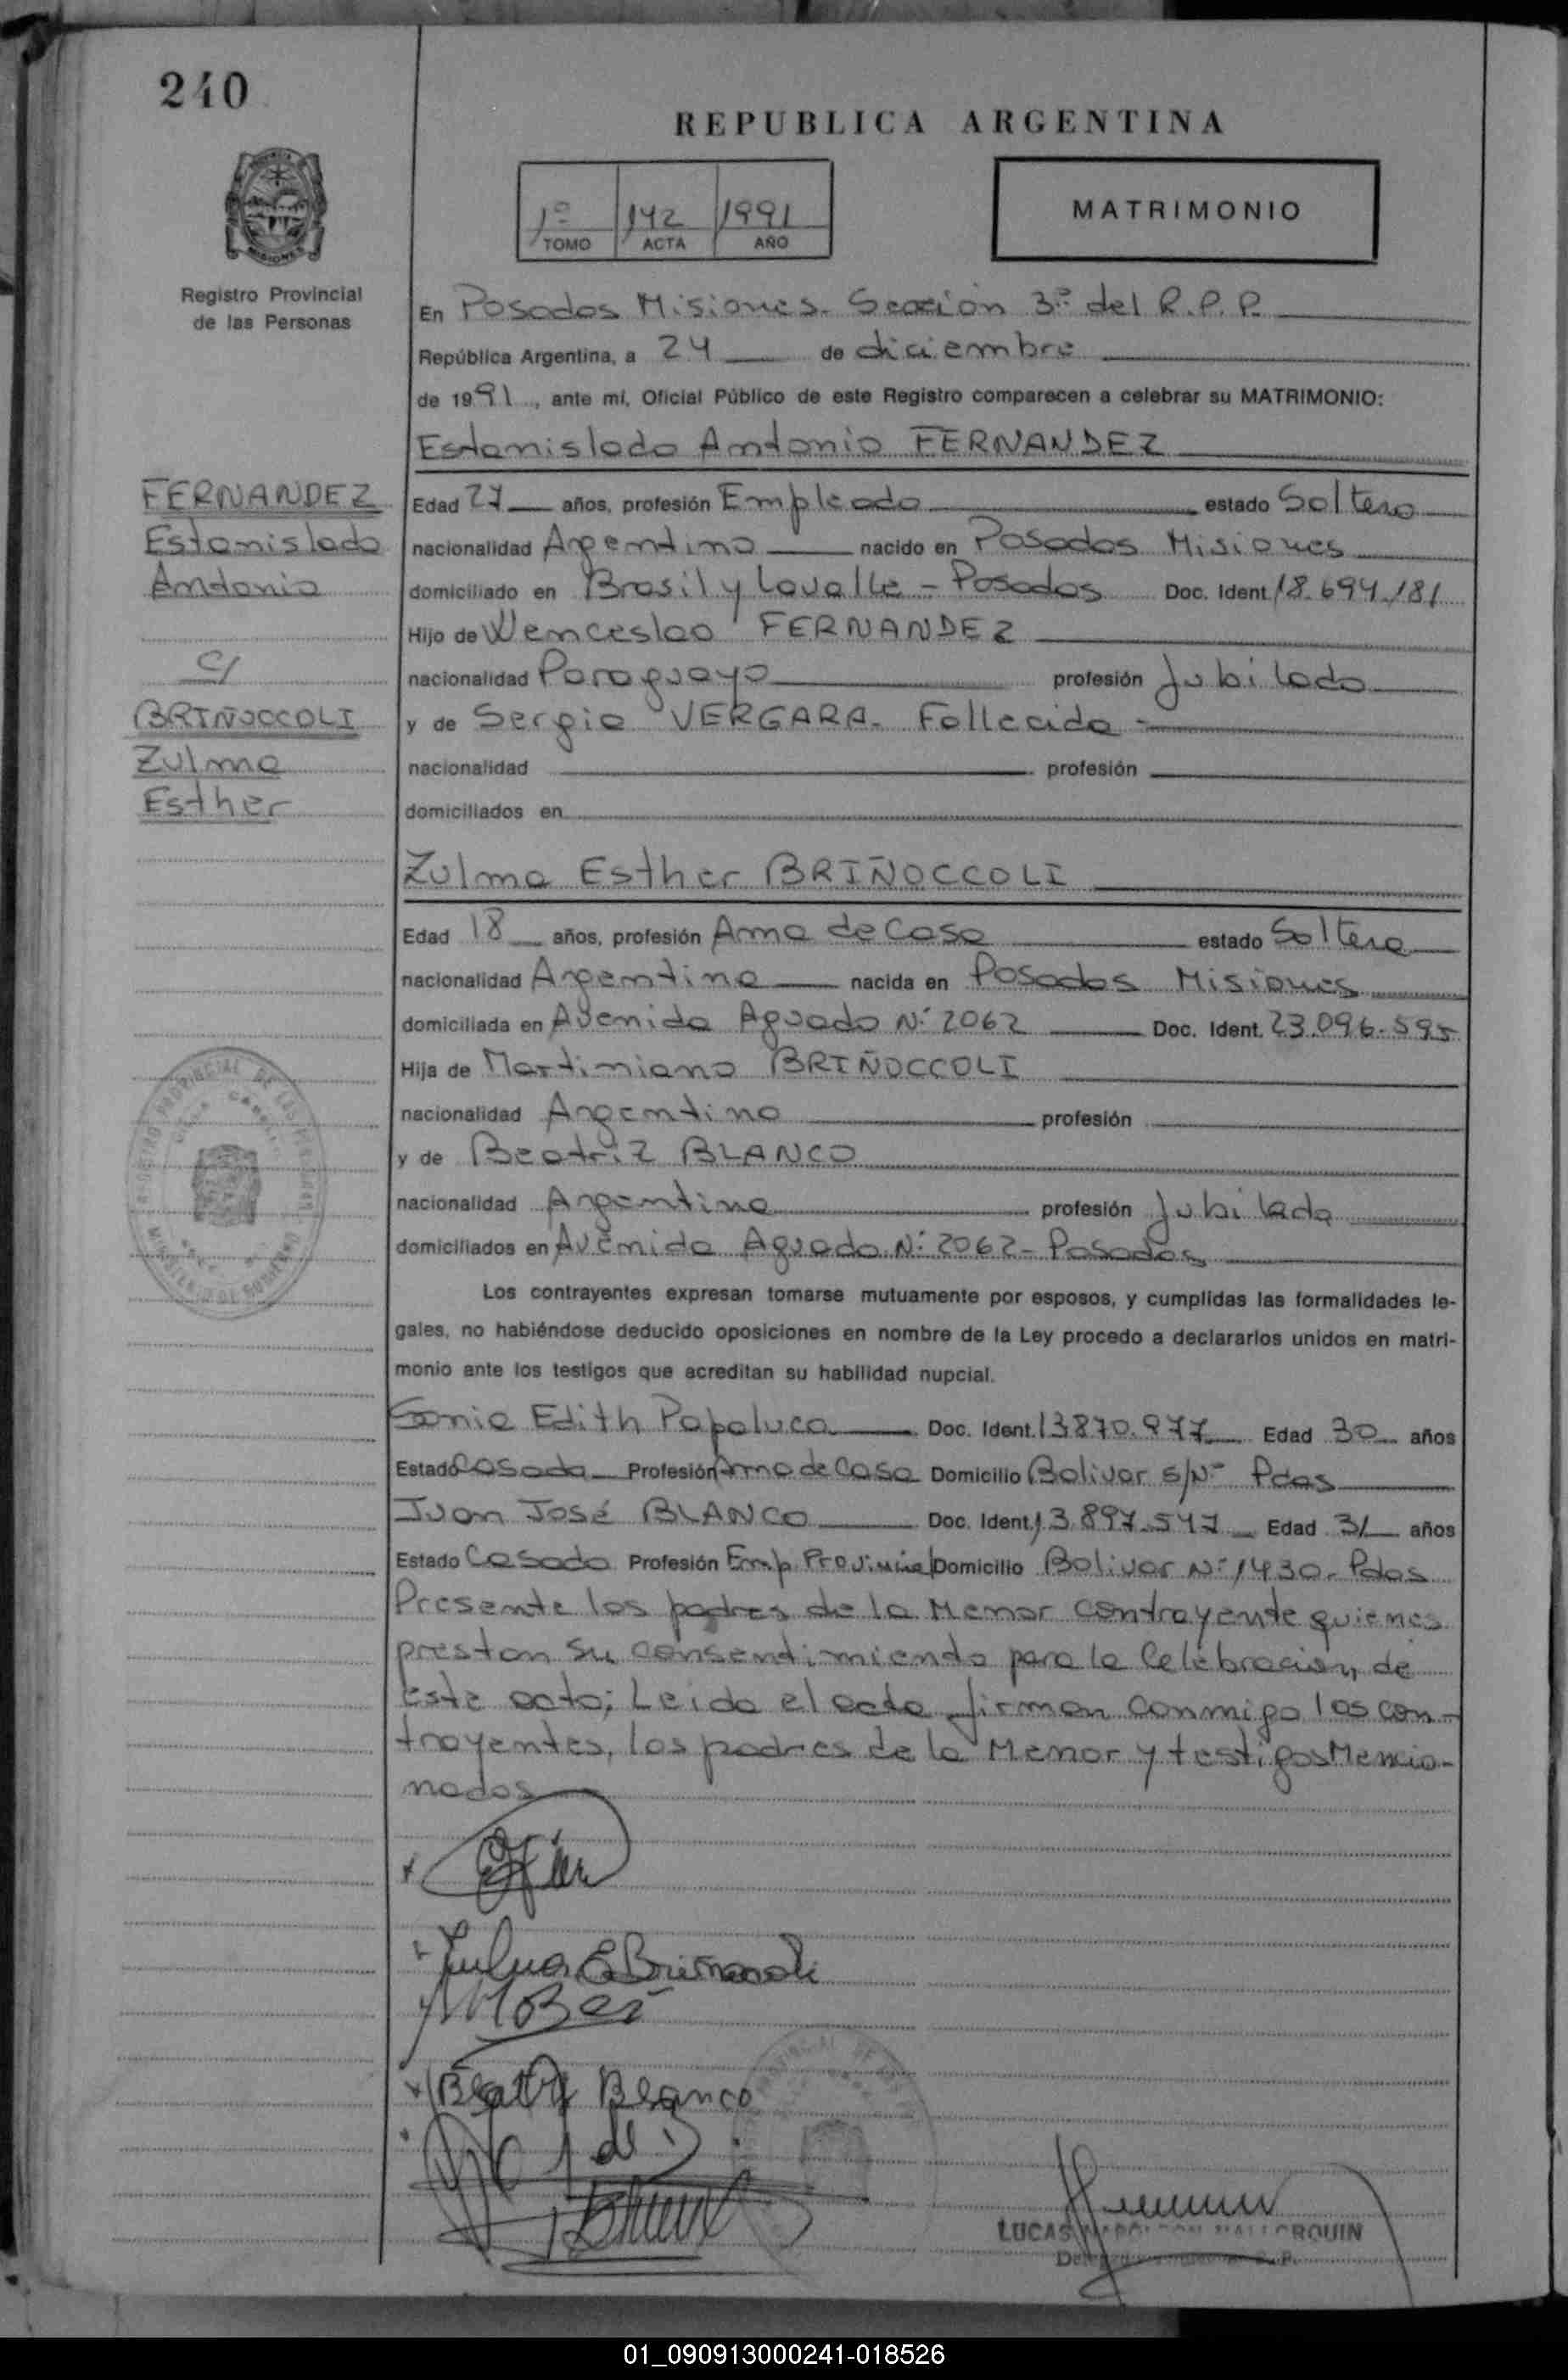 240
REPUBLICA ARGENTINA
1º 142 1991
TOMO ACTA AÑO
MATRIMONIO
Registro Provincial
de las Personas
En Posadas Misiones. Sección 3ª del R.P.P.
República Argentina, a 24 de diciembre
de 1991, ante mí, Oficial Público de este Registro comparecen a celebrar su MATRIMONIO:
Estanislado Antonio FERNANDEZ
FERNANDEZ
Estanislado
Antonio
C/
BRIÑOCCOLI
Zulma
Esther
Edad 27 años, profesión Empleado estado Soltero
nacionalidad Argentino nacido en Posadas Misiones
domiciliado en Brasil y Lavalle - Posadas Doc. Ident. 18.694.181
Hijo de Wenceslao FERNANDEZ
nacionalidad Paraguayo profesión Jubilado
y de Sergia VERGARA. Fallecida
nacionalidad profesión
domiciliados en
Zulma Esther BRIÑOCCOLI
Edad 18 años, profesión Ama de Casa estado Soltera
nacionalidad Argentina nacida en Posadas Misiones
domiciliada en Avenida Aguado Nº 2062 Doc. Ident. 23.096.595
Hija de Martimiano BRIÑOCCOLI
nacionalidad Argentino profesión
y de Beatriz BLANCO
nacionalidad Argentina profesión Jubilada
domiciliados en Avenida Aguado Nº 2062 - Posadas
Los contrayentes expresan tomarse mutuamente por esposos, y cumplidas las formalidades le-
gales, no habiéndose deducido oposiciones en nombre de la Ley procedo a declararlos unidos en matri-
monio ante los testigos que acreditan su habilidad nupcial.
Sonia Edith Papaluca Doc. Ident. 13870.977 Edad 30 años
Estado Casada Profesión Ama de Casa Domicilio Bolivar s/Nº Pdas
Juan José BLANCO Doc. Ident. 13.897.547 Edad 31 años
Estado Casado Profesión Emp. Provincial Domicilio Bolivar Nº 1430. Pdas
Presente los padres de la Menor contrayente quienes
prestan su consentimiento para la Celebración de
este acto; Leida el acta firman conmigo los con-
trayentes, los padres de la Menor y testigos Mencio-
nados
Beatriz Blanco
LUCAS NAPOLEON MALLORQUIN
01_090913000241-018526